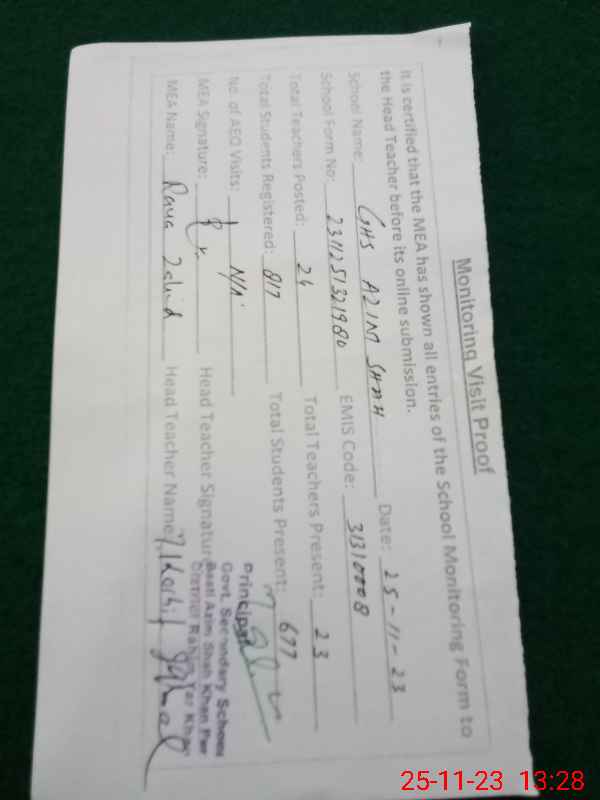 Monitoring Visit Proof
It is certified that the MEA has shown all entries of the School Monitoring Form to
the Head Teacher before its online submission.
School Name: GHS AZIM SHAH Date: 25-11-23
School Form No: 2311251321980 EMIS Code: 31310008
Total Teachers Posted: 24 Total Teachers Present: 23
Total Students Registered: 817 Total Students Present: 677
No. of AEO Visits: N/A
MEA Signature: Head Teacher Signature
MEA Name: Rana Zahid Head Teacher Name:
Principal
Govt. Secondary School
Basti Azim Shah Khan Pur
District Rahim Yar Khan
25-11-23 13:28